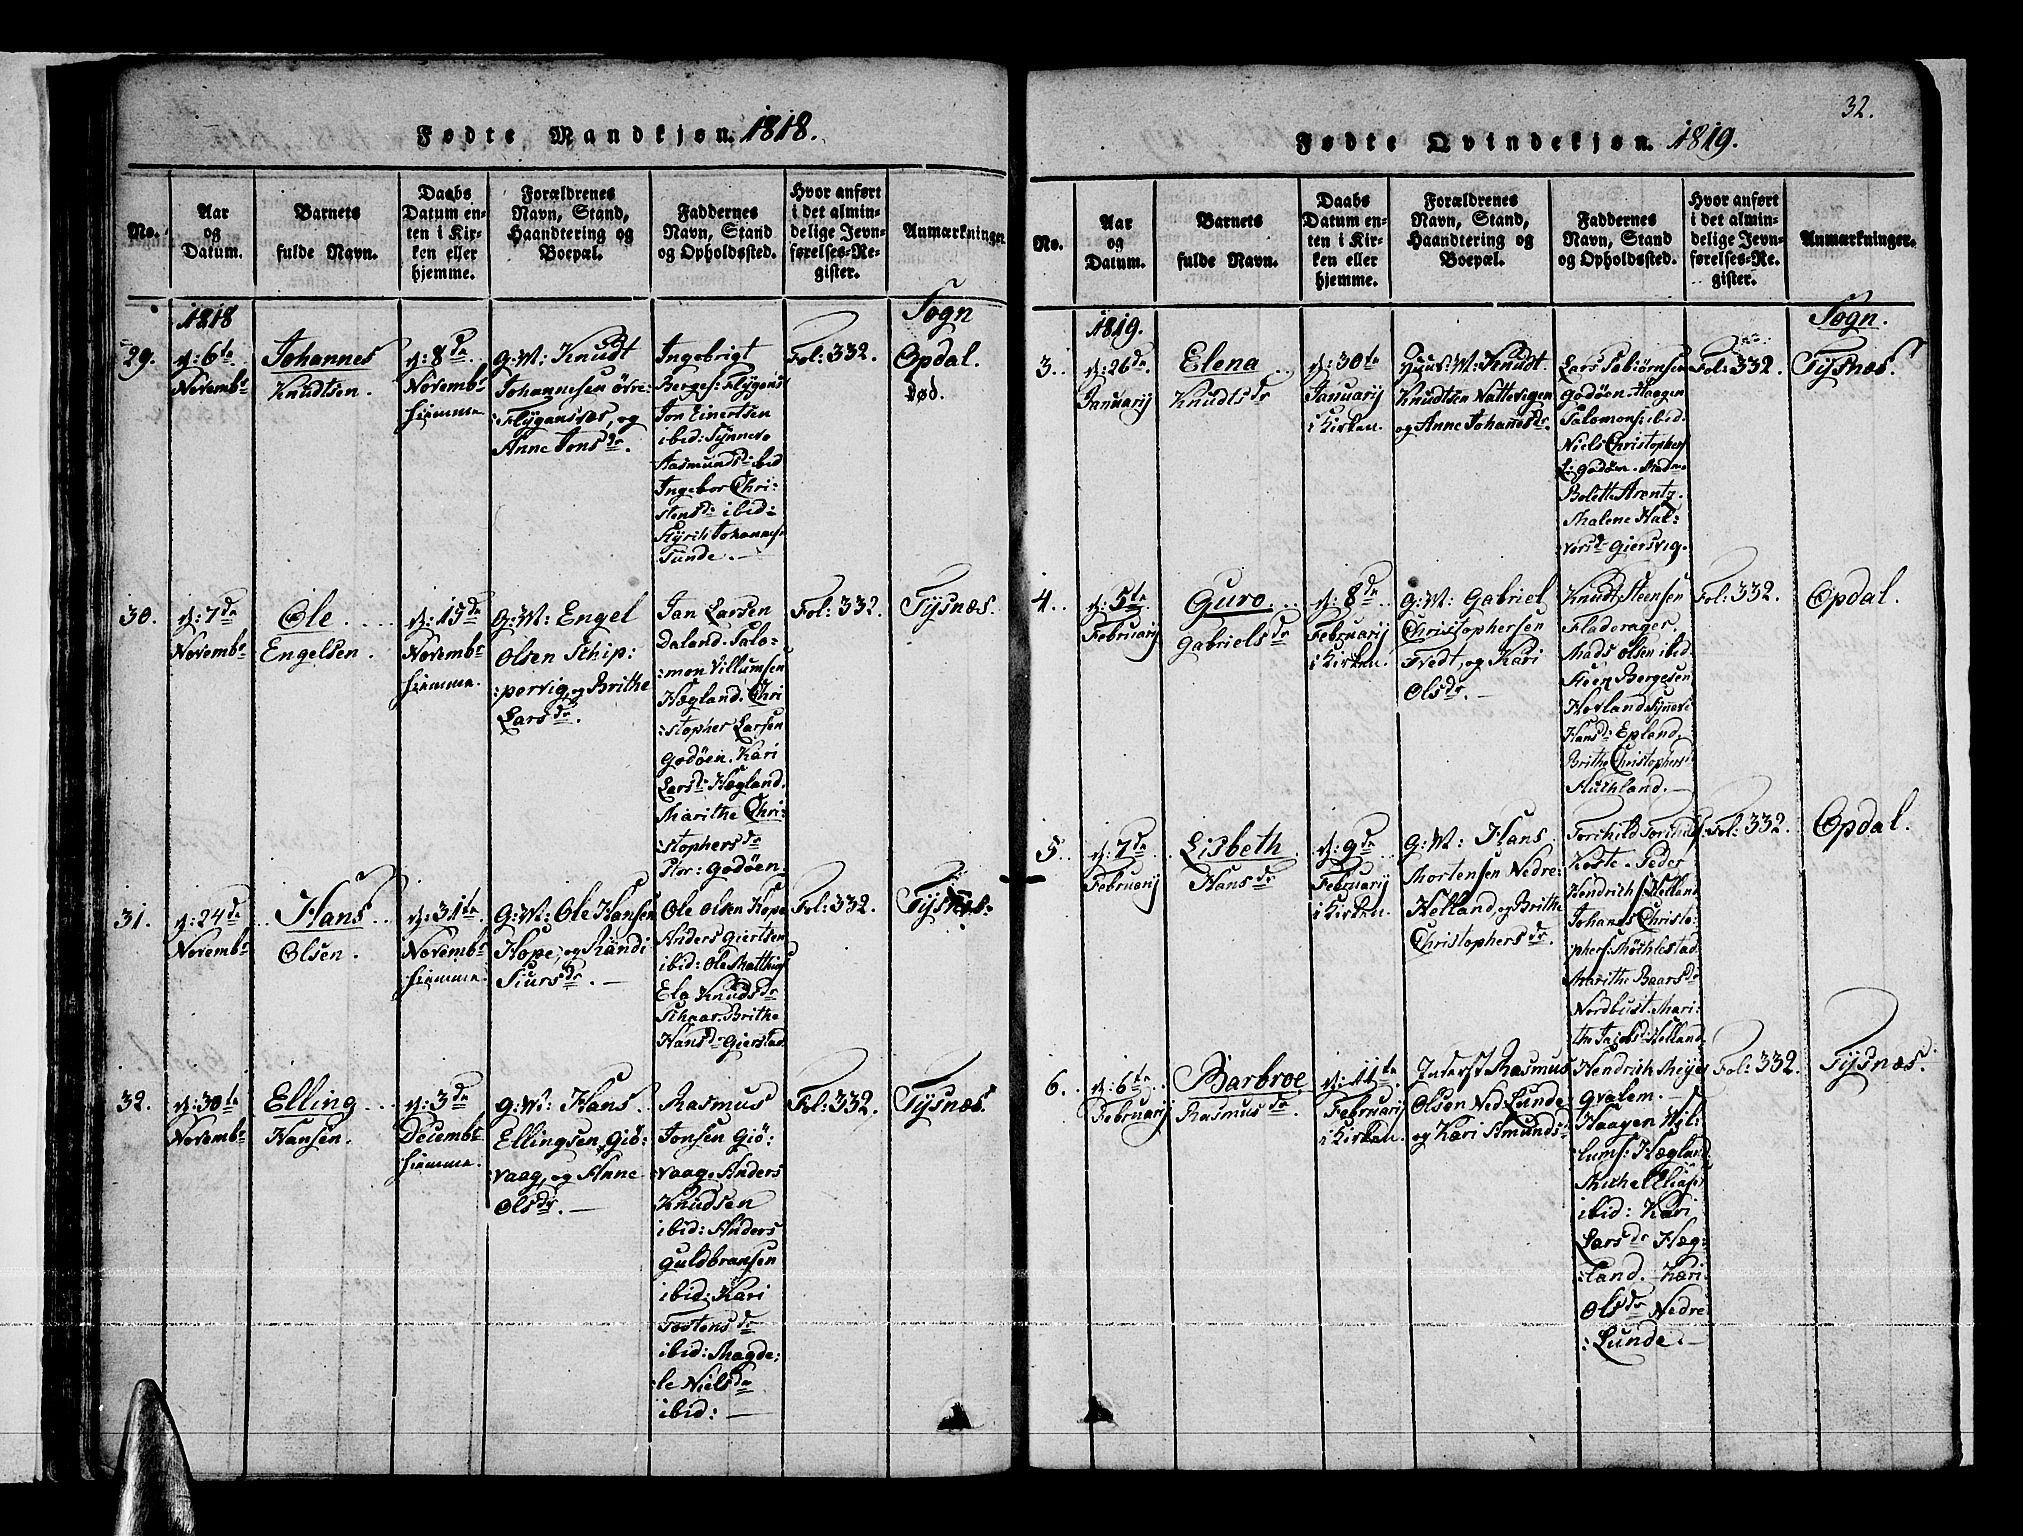 Fødte Mandkjøn 1818.
No.
Aar
og
Datum.
Barnets
fulde Navn.
Daabs
Datum en-
ten i Kir-
ken eller
hjemme.
Forældrenes
Navn, Stand,
Haandtering og
Boepæl.
Faddernes
Navn, Stand
og Opholdssted.
Hvor anført
i det almin-
delige Jevn-
førelses-Re-
gister.
Anmærkninger
29.
1818
d: 6te
Novembr
Johannes
Knudtsen.
d: 8de
Novembr
hiemme
G: M: Knudt
Johannesen øvre
Flÿgansvær, og
Anne Jonsdr.
Ingebrigt
Berges: Flÿgans
Jon Einertsen
ibid: Sÿnneve
Aasmundsd: ibid
Ingebor Chri-
stensdr ibid:
Kÿrili Johannes
Tunde. —
Fol: 332.
Sogn
Opdal.
død.
30.
d: 7de
Novembr
Ole
Engelsen.
d: 15de
Novembr
hiemme.
G: M: Engel
Olsen Schip:
:pervig, og Brithe
Larsdr
Jan Larsen
Daland. Salo:
:mon Villumsen
Hægland. Chri
:stopher Larsen
Godøen. Kari
Larsd: Hægland.
Marithe Chri:
:stophersdr
Pl: Godøen.
Fol: 332.
Tÿsnæs.
31.
d: 24de
Novembr
Hans
Olsen.
d: 31te
Novembr
hiemme.
G: M: Ole Hansen
Hope, og Randi
Siursdr. —
Ole Olsen Hope
Anders Giertsen
ibid: Ole Matthias
Ela Knudsdr
Schaar. Brithe
Hansdr Gierstad
Fol: 332.
Tÿsnæs:
32.
d: 30te
Novembr
Elling
Hansen.
d: 3de
Decembr
hiemme.
G: M: Hans
Ellingsen Giø:
:vaag, og Anne
Olsdr. —
Rasmus
Jonsen Giø:
:vaag. Anders
Knudsen
ibid: Anders
Guldbransen
ibid: Kari
Tostensdr
ibid: Magde:
:le Nielsdr
ibid: —
Fol: 332.
Tÿsnæs.
32.
Fødte Qvindekjøn 1819.
No.
Aar
og
Datum.
Barnets
fulde Navn.
Daabs
Datum en-
ten i Kir-
ken eller
hjemme.
Forældrenes
Navn, Stand,
Haandtering og
Boepæl.
Faddernes
Navn, Stand
og Opholdssted.
Hvor anført
i det almin-
delige Jevn-
førelses-Re-
gister.
Anmærkninger.
3.
1819.
d: 26de
Januarij
Elena
Knudtsdr
d: 30te
Januarij
i Kirken.
Huus: M: Knudt
Knudtsen Nattevigen
og Anne Johannesdr.
Lars Tobiørnsen
Godøen. Haagen
Salomons: ibid.
Niels Christophers
L: Godøen. Mad
Bolette Arentz.
Malene Hal:
:versdr Giersvig.
Fol: 332.
Sogn.
Tÿsnæs.
4.
d: 5te
Februarij
Guro
Gabrielsdr
d: 8de
Februarij
i Kirken.
G: M: Gabriel
Christophersen
Tvedt, og Kari
Olsdr. —
Knudt Steensen
Fladerager
Mads Olsen ibid.
Steen Bergesen
Hovland Sÿnnevi
Hansd: Epland
Brithe Christophersd
Huthland. —
Fol: 332.
Opdal.
5.
d: 7de
Februarij
Lisbeth
Hansdr
d: 9de
Februarij
i Kirken.
G: M: Hans
Mortensen Nedre
Helland, og Brithe
Christophersdr.
Torchild Torchilds:
Koste. Peder
Hendrichs: Helland
Johanes Christo:
:phers: Møchlestad
Marithe Baarsdr
Nordbust. Mari:
:the Jacobsd: Helland
Fol: 332.
Opdal.
6.
d: 6te
Februarij
Barbroe
Rasmusdr.
d: 11te
Februarij
i Kirken.
Inderst Rasmus
Olsen Ned: Lunde
og Kari Amunds:
Hendrich Meÿer
Gvalem. —
Haagen Vil:
:lums: Hægland.
Michel Elias:
ibid: Kari
Larsdr Hæg:
:land. Kari
Olsdr Nedre
:Lunde. —
Fol: 332.
Tÿsnæs.